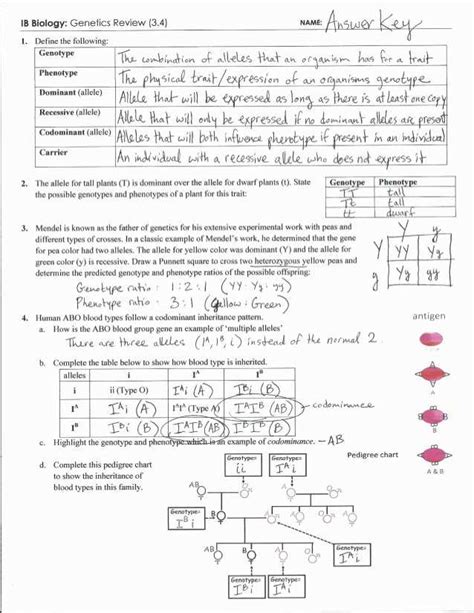 IB Biology: Genetics Review (3.4) NAME: Answer Key
1. Define the following:
Genotype The combination of alleles that an organism has for a trait
Phenotype The physical trait/expression of an organisms genotype
Dominant (allele) Allele that will be expressed as long as there is at least one copy
Recessive (allele) Allele that will only be expressed if no dominant alleles are present
Codominant (allele) Alleles that will both influence phenotype if present in an individual
Carrier An individual with a recessive allele who does not express it
2. The allele for tall plants (T) is dominant over the allele for dwarf plants (t). State
the possible genotypes and phenotypes of a plant for this trait:
Genotype Phenotype
TT tall
Tt tall
tt dwarf
3. Mendel is known as the father of genetics for his extensive experimental work with peas and
different types of crosses. In a classic example of Mendel's work, he determined that the gene
for pea color had two alleles. The allele for yellow color was dominant (Y) and the allele for
green color (y) is recessive. Draw a Punnett square to cross two heterozygous yellow peas and
determine the predicted genotype and phenotype ratios of the possible offspring:
Y y
Y YY Yy
y Yy yy
Genotype ratio : 1:2:1 (YY:Yy:yy)
Phenotype ratio : 3:1 (Yellow:Green)
4. Human ABO blood types follow a codominant inheritance pattern.
a. How is the ABO blood group gene an example of 'multiple alleles'
There are three alleles (Iᴬ, Iᴮ, i) instead of the normal 2.
antigen
b. Complete the table below to show how blood type is inherited.
alleles i Iᴬ Iᴮ
i ii (Type O) Iᴬi (A) Iᴮi (B)
Iᴬ Iᴬi (A) IᴬIᴬ (Type A) IᴬIᴮ (AB) codominance
Iᴮ Iᴮi (B) IᴬIᴮ (AB) IᴮIᴮ (B)
A
B
A & B
c. Highlight the genotype and phenotype which is an example of codominance. – AB
Pedigree chart
d. Complete this pedigree chart
to show the inheritance of
blood types in this family.
Genotype= ii
Genotype= Iᴬi
AB
Genotype= Iᴮi
Genotype= Iᴮi
AB
Genotype= Iᴮi
Genotype= Iᴬi